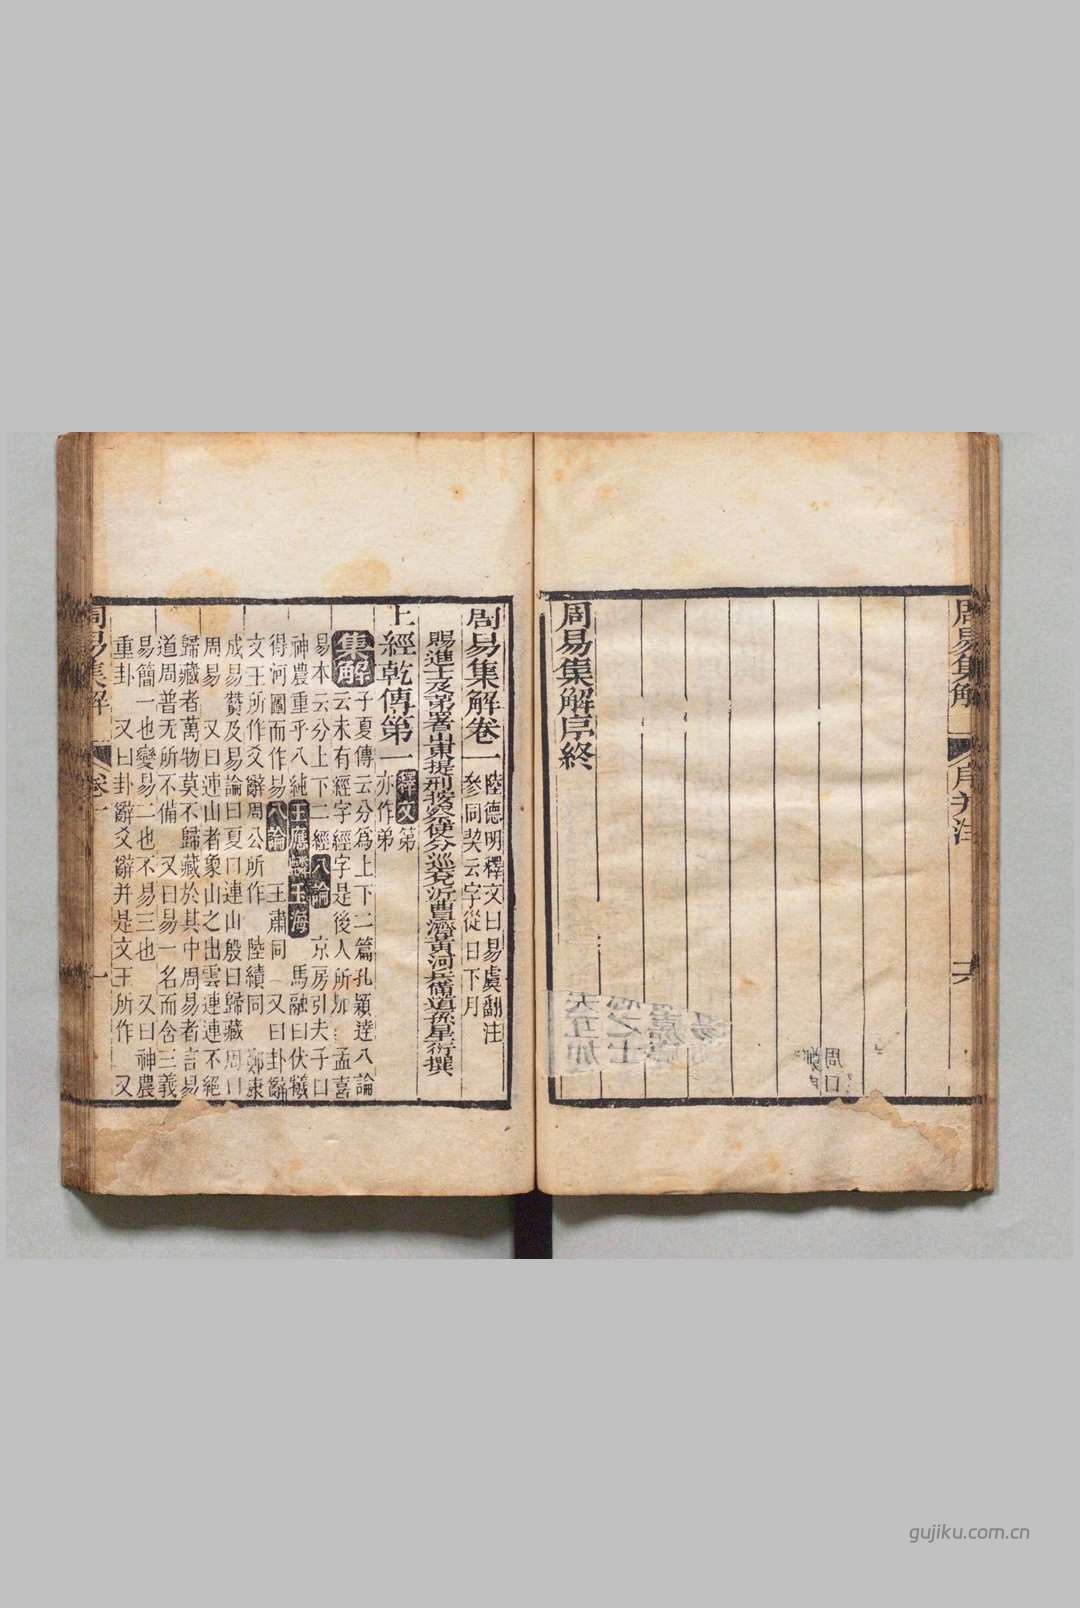 周易集解 序并注
周口
周易集解序終
周易集解卷一
陸德明釋文曰易虞翻注
參同契云字從日下月
賜進士及第署山東提刑按察使分巡兗沂曹濟黃河兵備道孫星衍撰
上經乾傳第一
釋文第
亦作弟
集解
子夏傳云分爲上下二篇孔穎達八論
云未有經字經字是後人所加 孟喜
易本云分上下二經八論 京房引夫子曰
神農重乎八純王應麟玉海 馬融曰伏犧
得河圖而作易八論 王肅同 又曰卦辭
文王所作爻辭周公所作 陸績同 鄭康
成易贊及易論曰夏曰連山殷曰歸藏周曰
周易 又曰連山者象山之出雲連連不絕
歸藏者萬物莫不歸藏於其中周易者言易
道周普无所不備 又曰易一名而含三義
易簡一也變易二也不易三也 又曰神農
重卦 又曰卦辭爻辭并是文王所作 又
周易集解 卷一 一
gujiku.com.cn